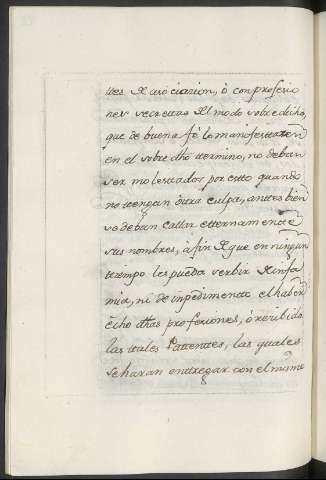 ttes de asociacion, ò con profesio
nes secrettas del modo sobre dicho,
que de buena fé lo manifesttaren
en el sobre dho ttermino, no deban
ser molesttados por estto quando
no ttengan ottra culpa, anttes bien
se deban callar etternamentte
sus nombres, a fin de que en ningun
ttiempo les pueda servir de infa
mia, ni de impedimento el haber
echo dhas profesiones, ò recibido
las ttales Pattenttes, las quales
se haran enttregar con el mismo